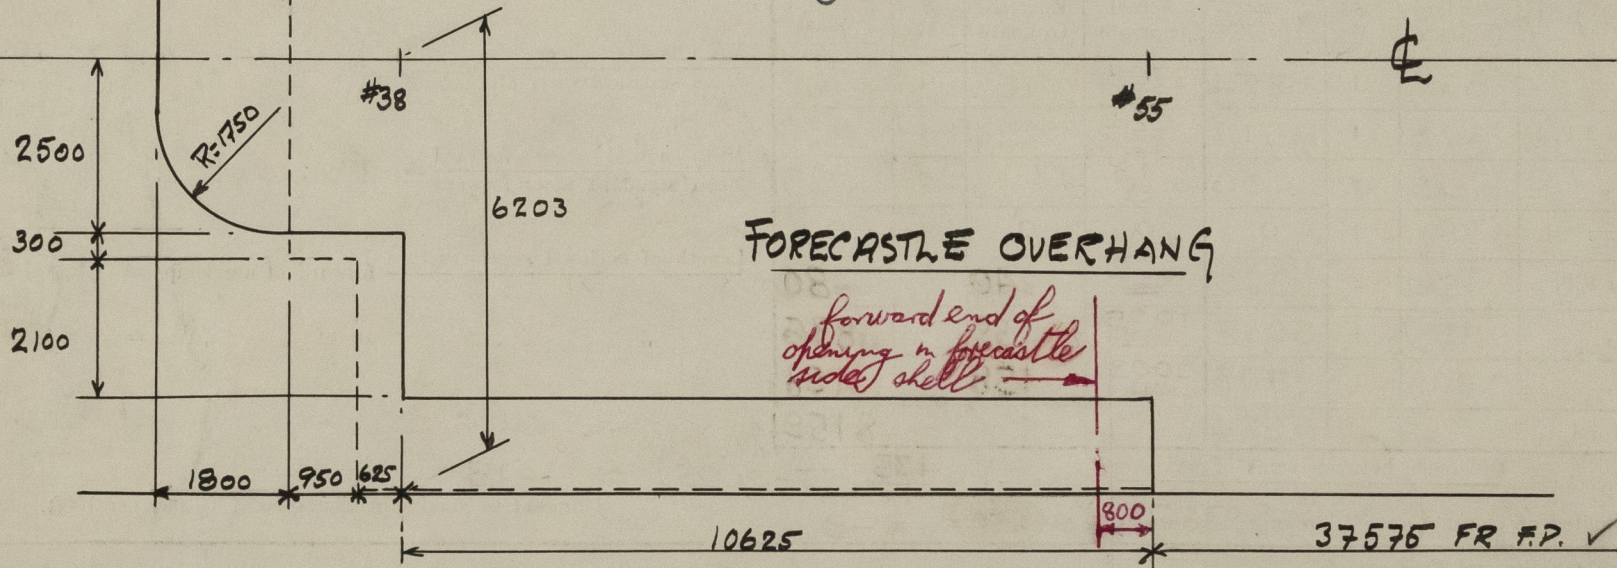 ℄
#38
#55
2500
R=1750
300
6203
FORECASTLE OVERHANG
2100
forward end of
opening in forecastle
side shell
1800
950
625
800
10625
37575 FR F.P. ✓